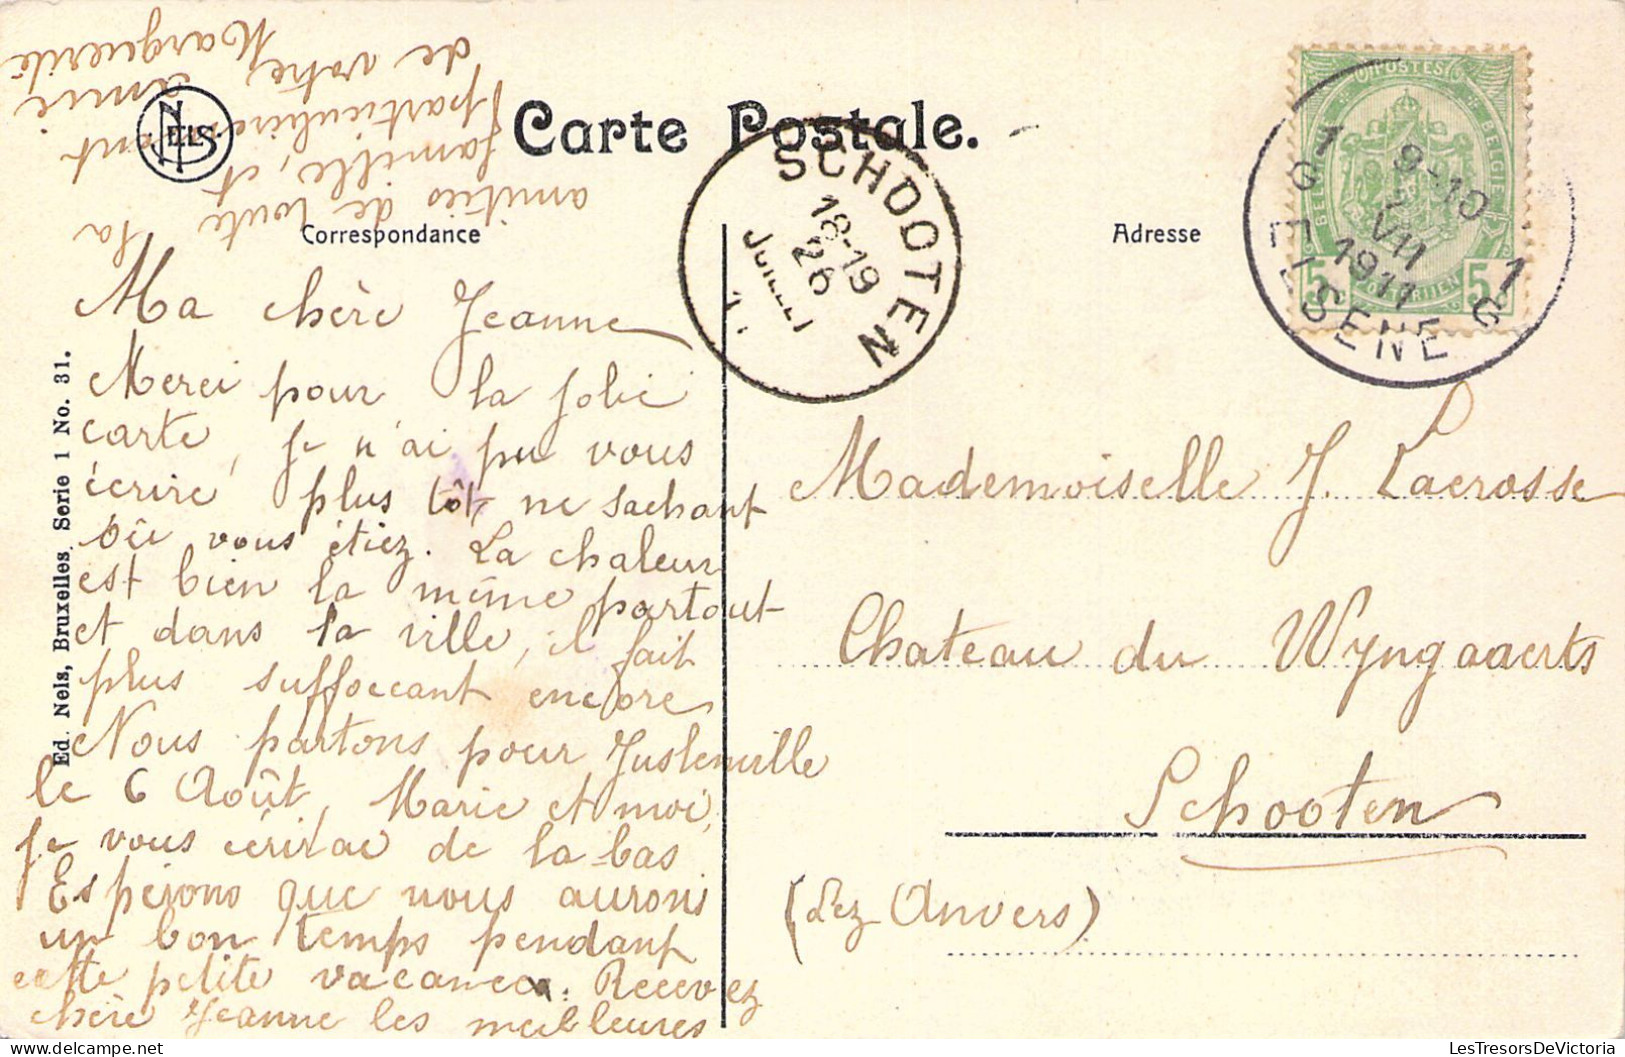 Carte Postale.
NELS
Correspondance
Adresse
Ed. Nels, Bruxelles Serie 1 No. 31.
SCHOOTEN
18-19
26
JUILLET
11
POSTES
BELGIE
5
5
1G ELSENE 1G
9-10
VII
1911
Ma chère Jeanne
Merci pour la jolie
carte, je n'ai pu vous
écrire plus tôt, ne sachant
où vous étiez. La chaleur
est bien la même partout
et dans la ville, il fait
plus suffoccant encore
Nous partons pour Juslenville
le 6 Août, Marie et moi,
je vous écrirai de la-bas
Espérons que nous aurons
un bon temps pendant
cette petite vacance. Recevez
chère Jeanne les meilleures
amitiés de toute la
famille, et
particulièrement
de votre amie
Marguerite
Mademoiselle J. Lacrosse
Chateau du Wyngaaerts
Schooten
(Lez Anvers)
LesTresorsDeVictoria